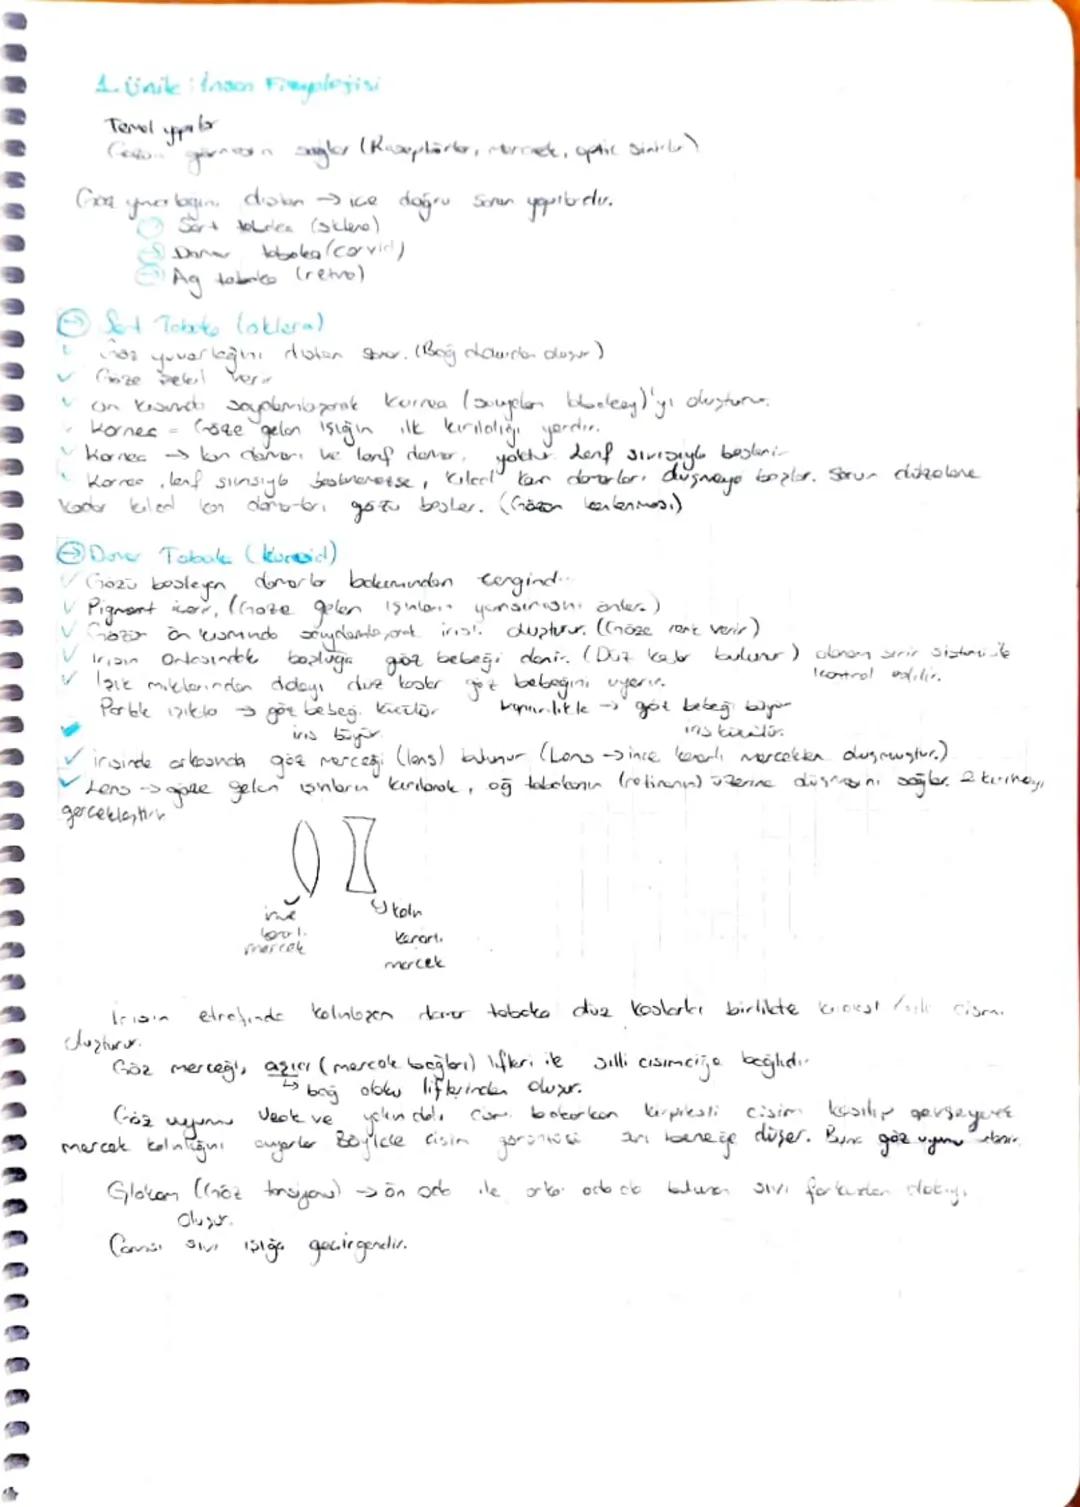 1. Ünite: İnsan Fizyolojisi
Temel yapılar
görmesin sağlar (Reseptörler, mercek, optik sinirler)
Göz yuvarlağını dıştan → içe doğru saran yapılardır.
Sert tabaka (sklera)
Damar tabaka (corvid)
Ağ tabaka (retina)
→ Sert Tabaka (sklera)
Göz yuvarlağını dıştan sarar. (Bağ dokudan oluşur)
Göze şekil verir
ön kısımda saydamlaşarak kornea (saydam tabaka)'yı oluşturur.
Kornea = Göze gelen ışığın ilk kırıldığı yerdir.
Kornea → kan damarı ve lenf damarı yoktur. Lenf sıvısıyla beslenir
Kornea, lenf sıvısıyla beslenemezse, kılcal kan damarları düşmeye başlar. Sorun düzelene
kadar kılcal kan damarları gözü besler. (Gözün kanlanması)
→ Damar Tabaka (Koroid)
Gözü besleyen damarlar bakımından zengindir
Pigment içerir, (Göze gelen ışınların yansımasını önler.)
Gözün ön kısmında saydamlaşarak irisi oluşturur. (Göze renk verir)
İrisin Ortasındaki boşluğa göz bebeği denir. (Düz kaslar bulunur) otonom sinir sistemi ile
kontrol edilir.
Işık miktarından dolayı düz kaslar göz bebeğini uyarır.
Parlak ışıkta → göz bebeği küçülür karanlıkta → göz bebeği büyür
iris büyür iris küçülür.
irisinde arkasında göz merceği (lens) bulunur (Lens → ince kenarlı mercekten oluşmuştur.)
Lens → göze gelen ışınların kırılarak, ağ tabakanın (retinanın) üzerine düşmesini sağlar. 2 kırılmayı
gerçekleştirir
ince kenarlı mercek
kalın kenarlı mercek
İrisin etrafında kalınlaşan damar tabaka düz kaslarla birlikte kirpiksi / silli cismi
oluşturur.
Göz merceği, asıcı (mercek bağları) lifleri ile silli cisimciğe bağlıdır
↳ bağ doku liflerinden oluşur.
Göz uyumu Uzak ve yakındaki cisme bakarken kirpiksi cisim kasılıp gevşeyerek
mercek kalınlığını ayarlar Böylece cisim görüntüsü sarı beneğe düşer. Buna göz uyumu denir
Glokom (Göz tansiyonu) → ön oda ile arka odada bulunan sıvı farkından dolayı
oluşur.
Camsı sıvı ışığı geçirgendir.